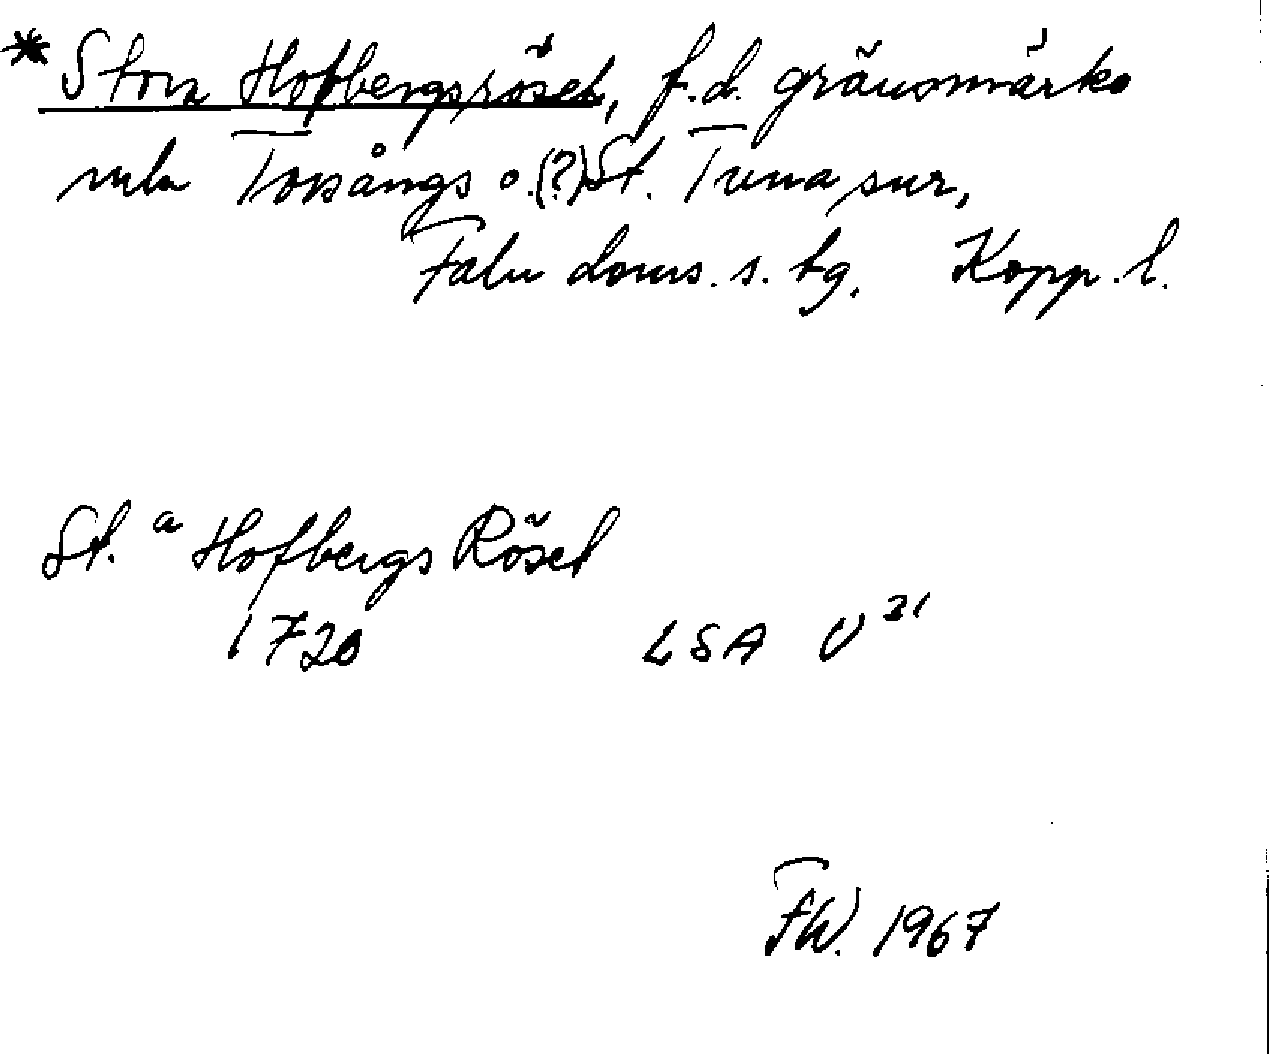 * Stora Hofbergsröset, f.d. gränsmärke
mln Torsångs o.(?) St. Tuna snr,
Falu doms. s. tg. Kopp. l.
St.a Hofbergs Röset
1720 LSA U 31
FW. 1967